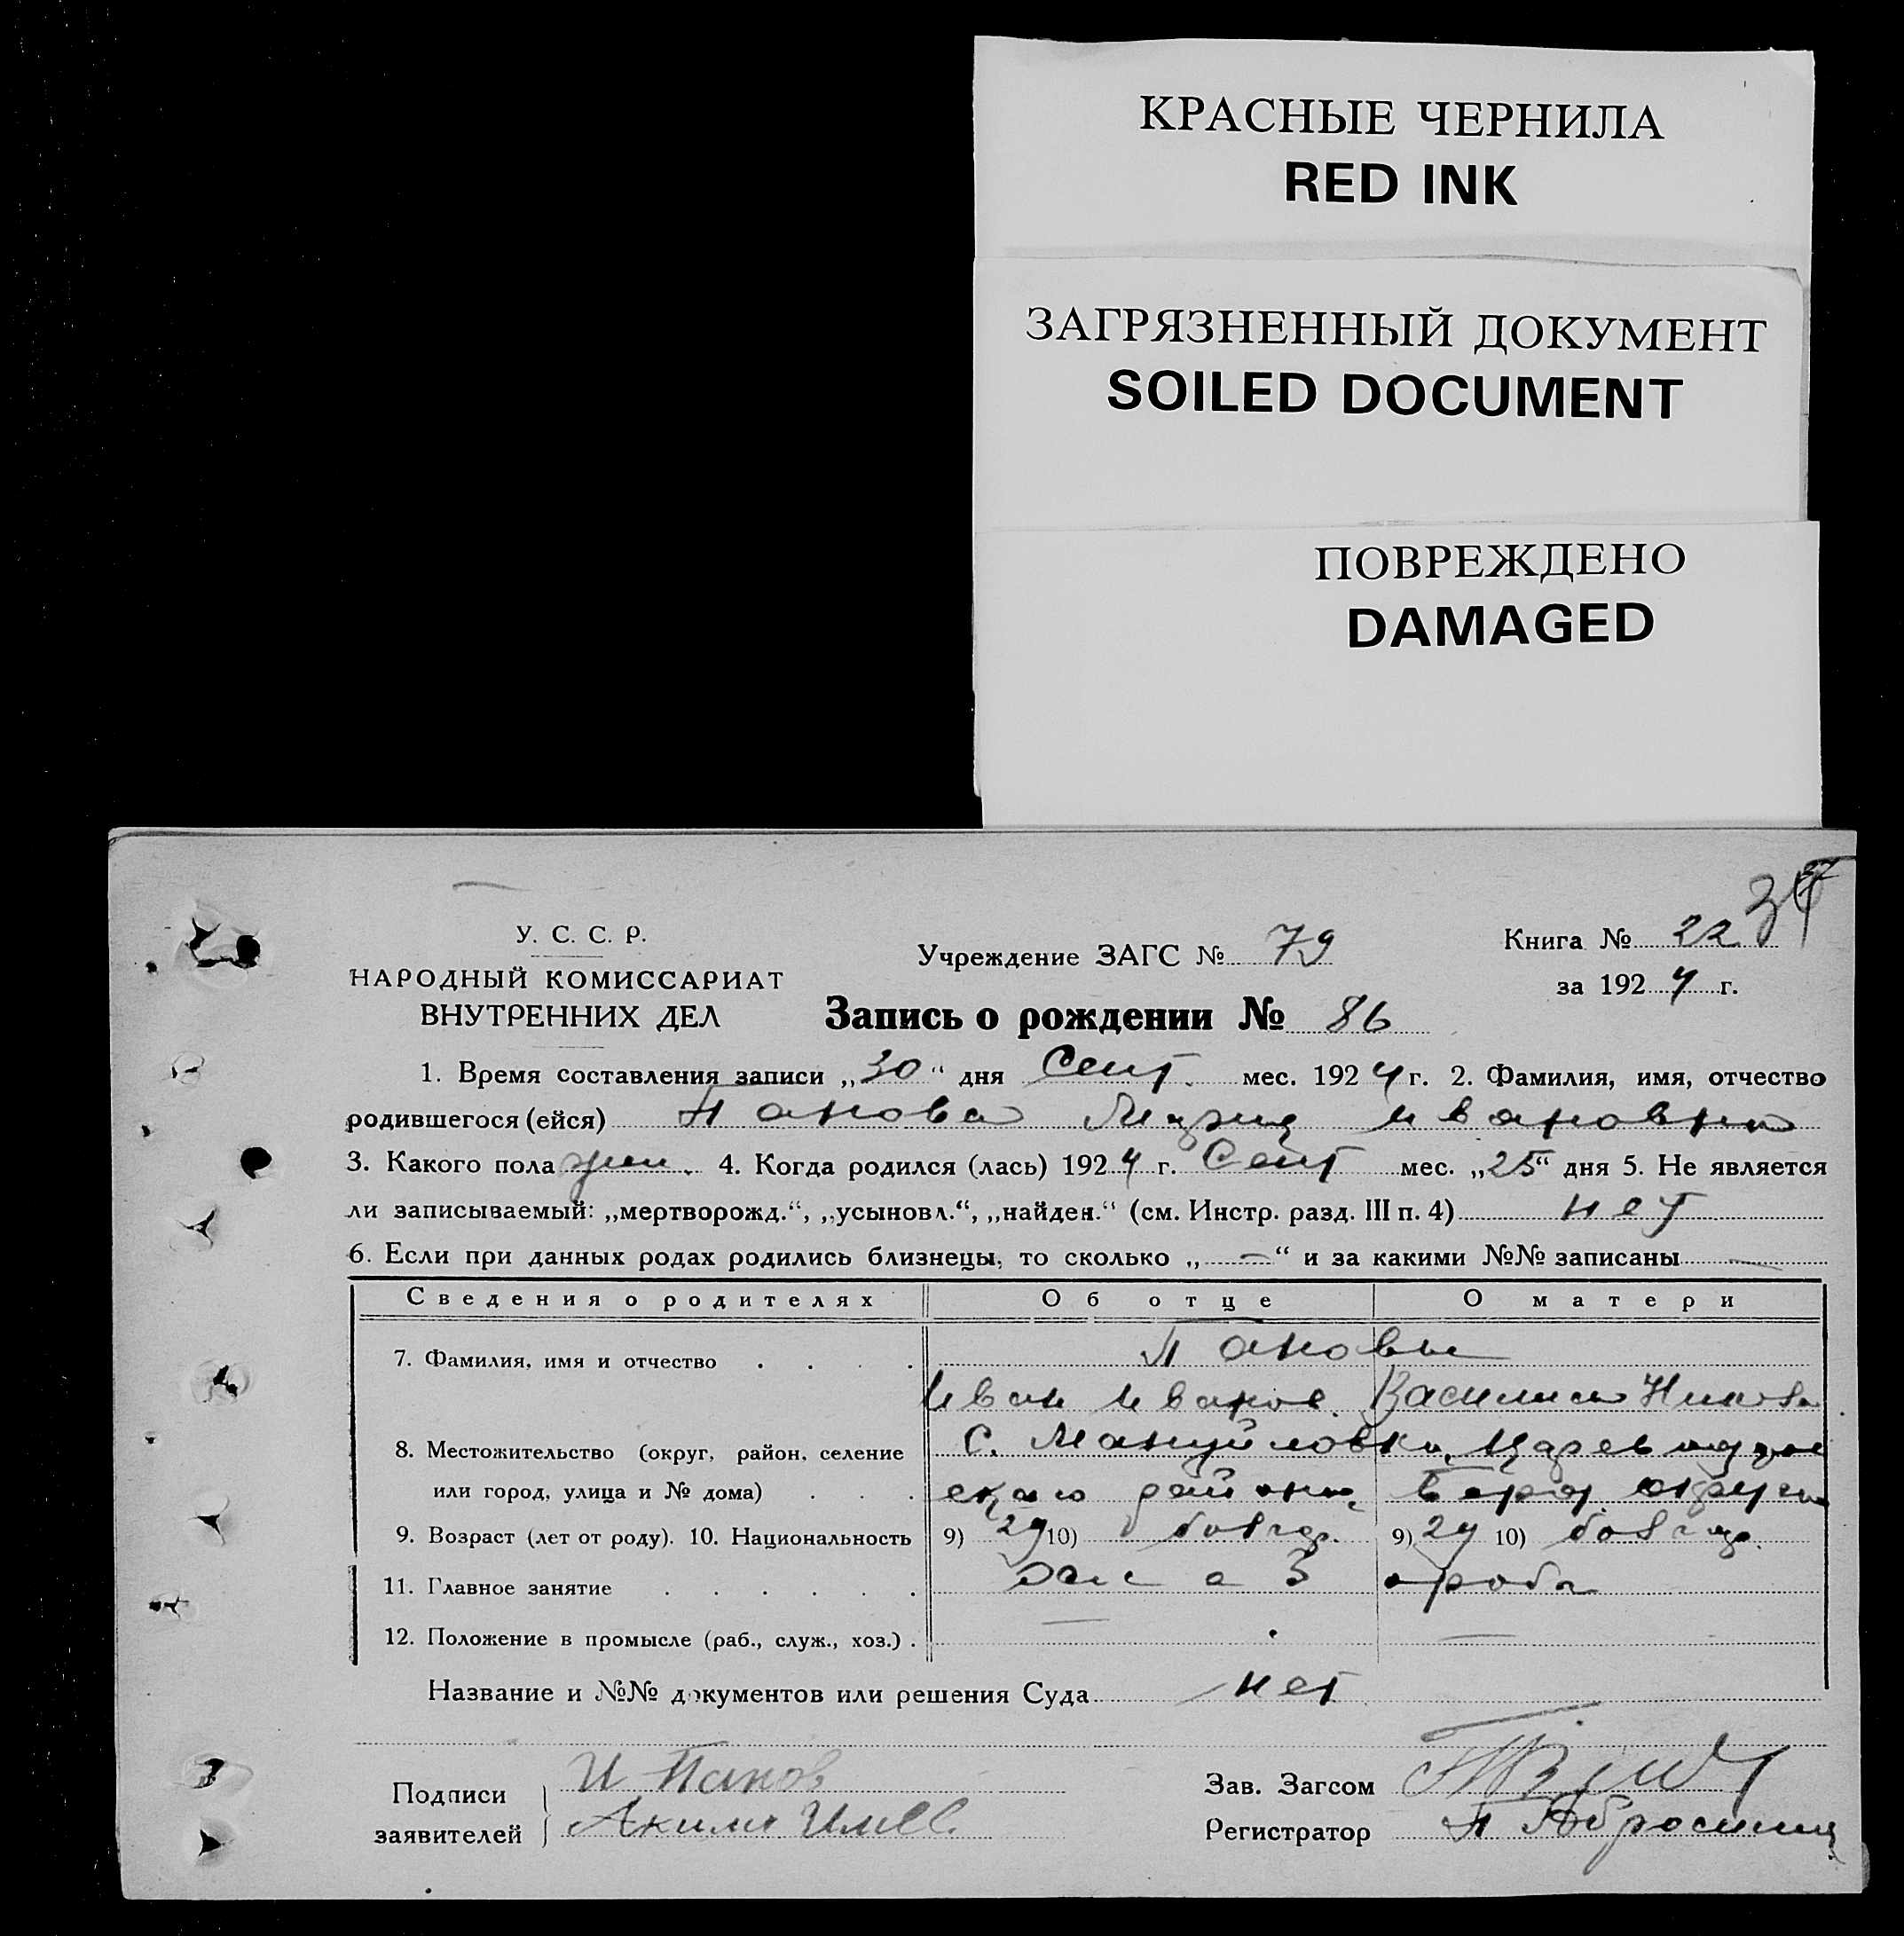 КРАСНЫЕ ЧЕРНИЛА
RED INK
ЗАГРЯЗНЕННЫЙ ДОКУМЕНТ
SOILED DOCUMENT
ПОВРЕЖДЕНО
DAMAGED
У. С. С. Р.
НАРОДНЫЙ КОМИССАРИАТ
ВНУТРЕННИХ ДЕЛ
Учреждение ЗАГС № 79
Книга № 22
за 1924 г.
Запись о рождении № 86
1. Время составления записи „30“ дня Сент. мес. 1924 г. 2. Фамилия, имя, отчество
родившегося (ейся) Панова Мария Ивановна
3. Какого пола жен. 4. Когда родился (лась) 1924 г. Сент мес. „25“ дня 5. Не является
ли записываемый: „мертворожд.“, „усыновл.“, „найден.“ (см. Инстр. разд. III п. 4) нет
6. Если при данных родах родились близнецы, то сколько „—“ и за какими №№ записаны —
Сведения о родителях Об отце О матери
7. Фамилия, имя и отчество Пановы
Иван Иванов. Василиса
8. Местожительство (округ, район, селение С. Мануйловка,
или город, улица и № дома) района,
9. Возраст (лет от роду). 10. Национальность 9) 29 10) болгар. 9) 29 10) болгар.
11. Главное занятие
12. Положение в промысле (раб., служ., хоз.) — —
Название и №№ документов или решения Суда нет
Подписи заявителей И Панов
Зав. Загсом
Регистратор